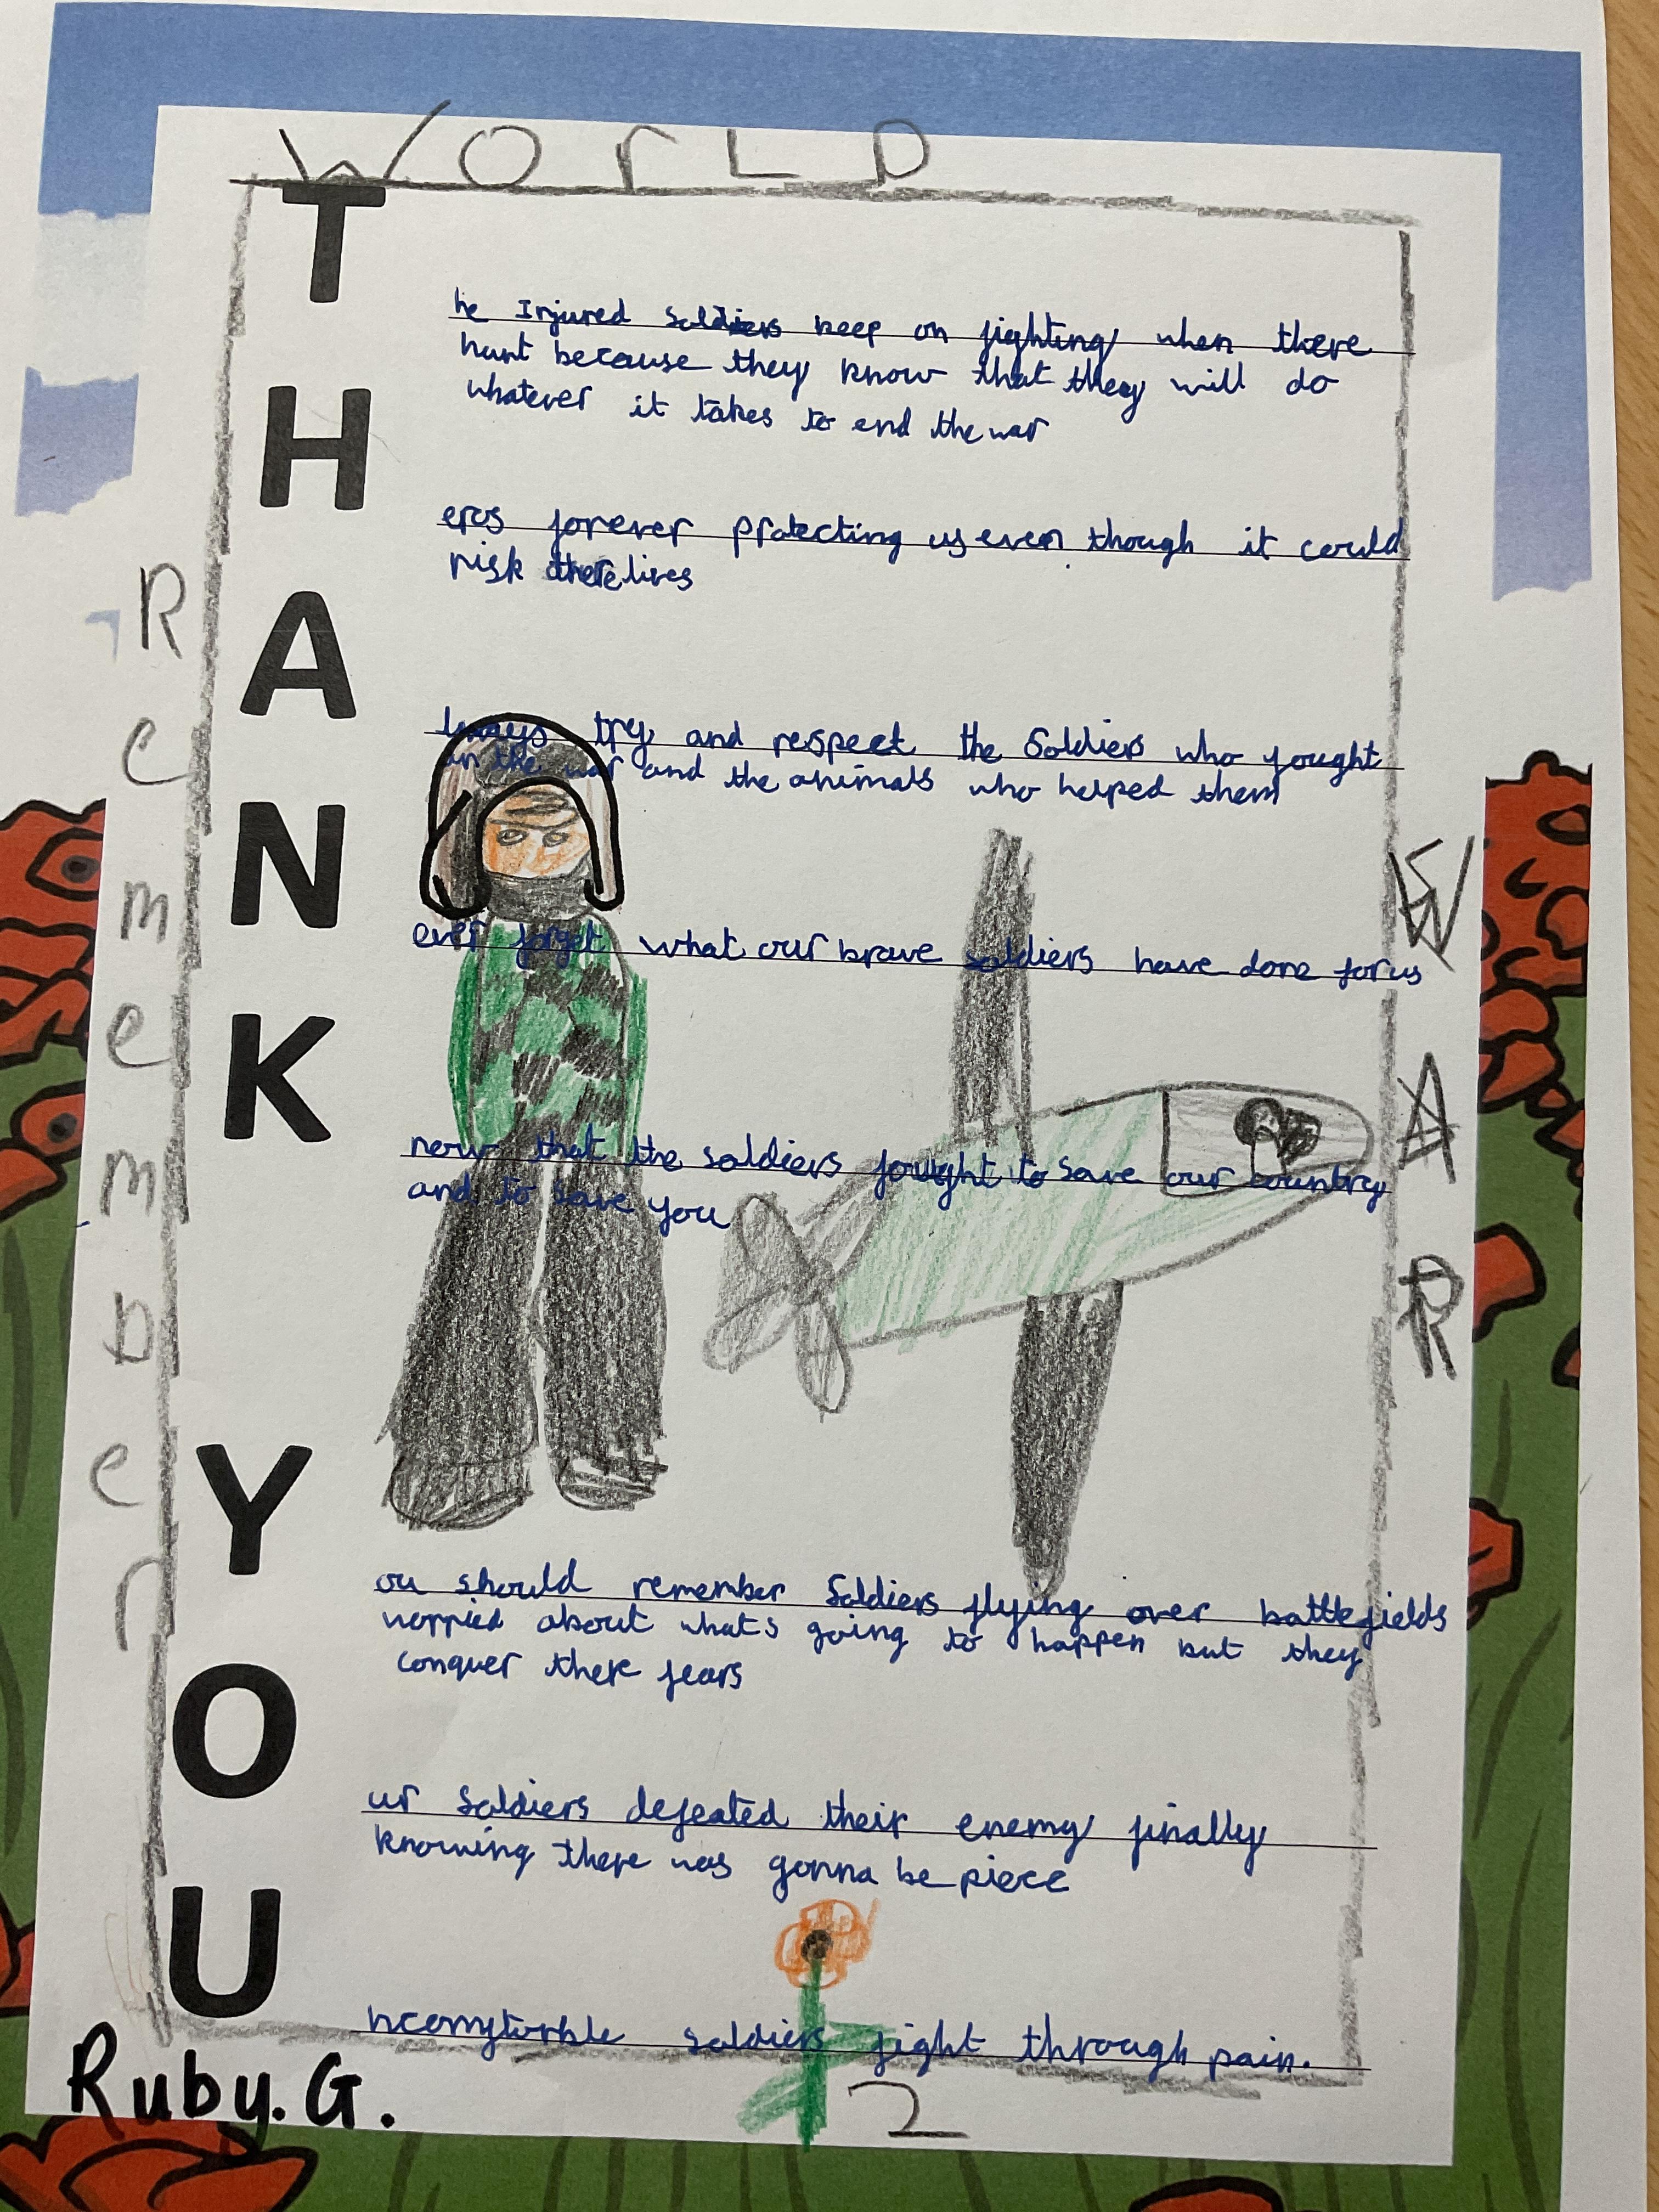 WOrLD
T
he Injured soldiers keep on fighting when there
hurt because they know that they will do
whatever it takes to end the war
H
eros forever protecting us even though it could
risk there lives
A
lways try and respect the Soldiers who fought
in the war and the animals who helped them
N
ever forget what our brave soldiers have done for us
K
now that the soldiers fought to save our country
and to save you
Y
ou should remember Soldiers flying over battlefields
worried about what's going to happen but they
conquer there fears
O
ur soldiers defeated their enemy finally
knowing there was gonna be piece
U
ncomftorble soldiers fight through pain.
Remember
WAR
2
Ruby.G.